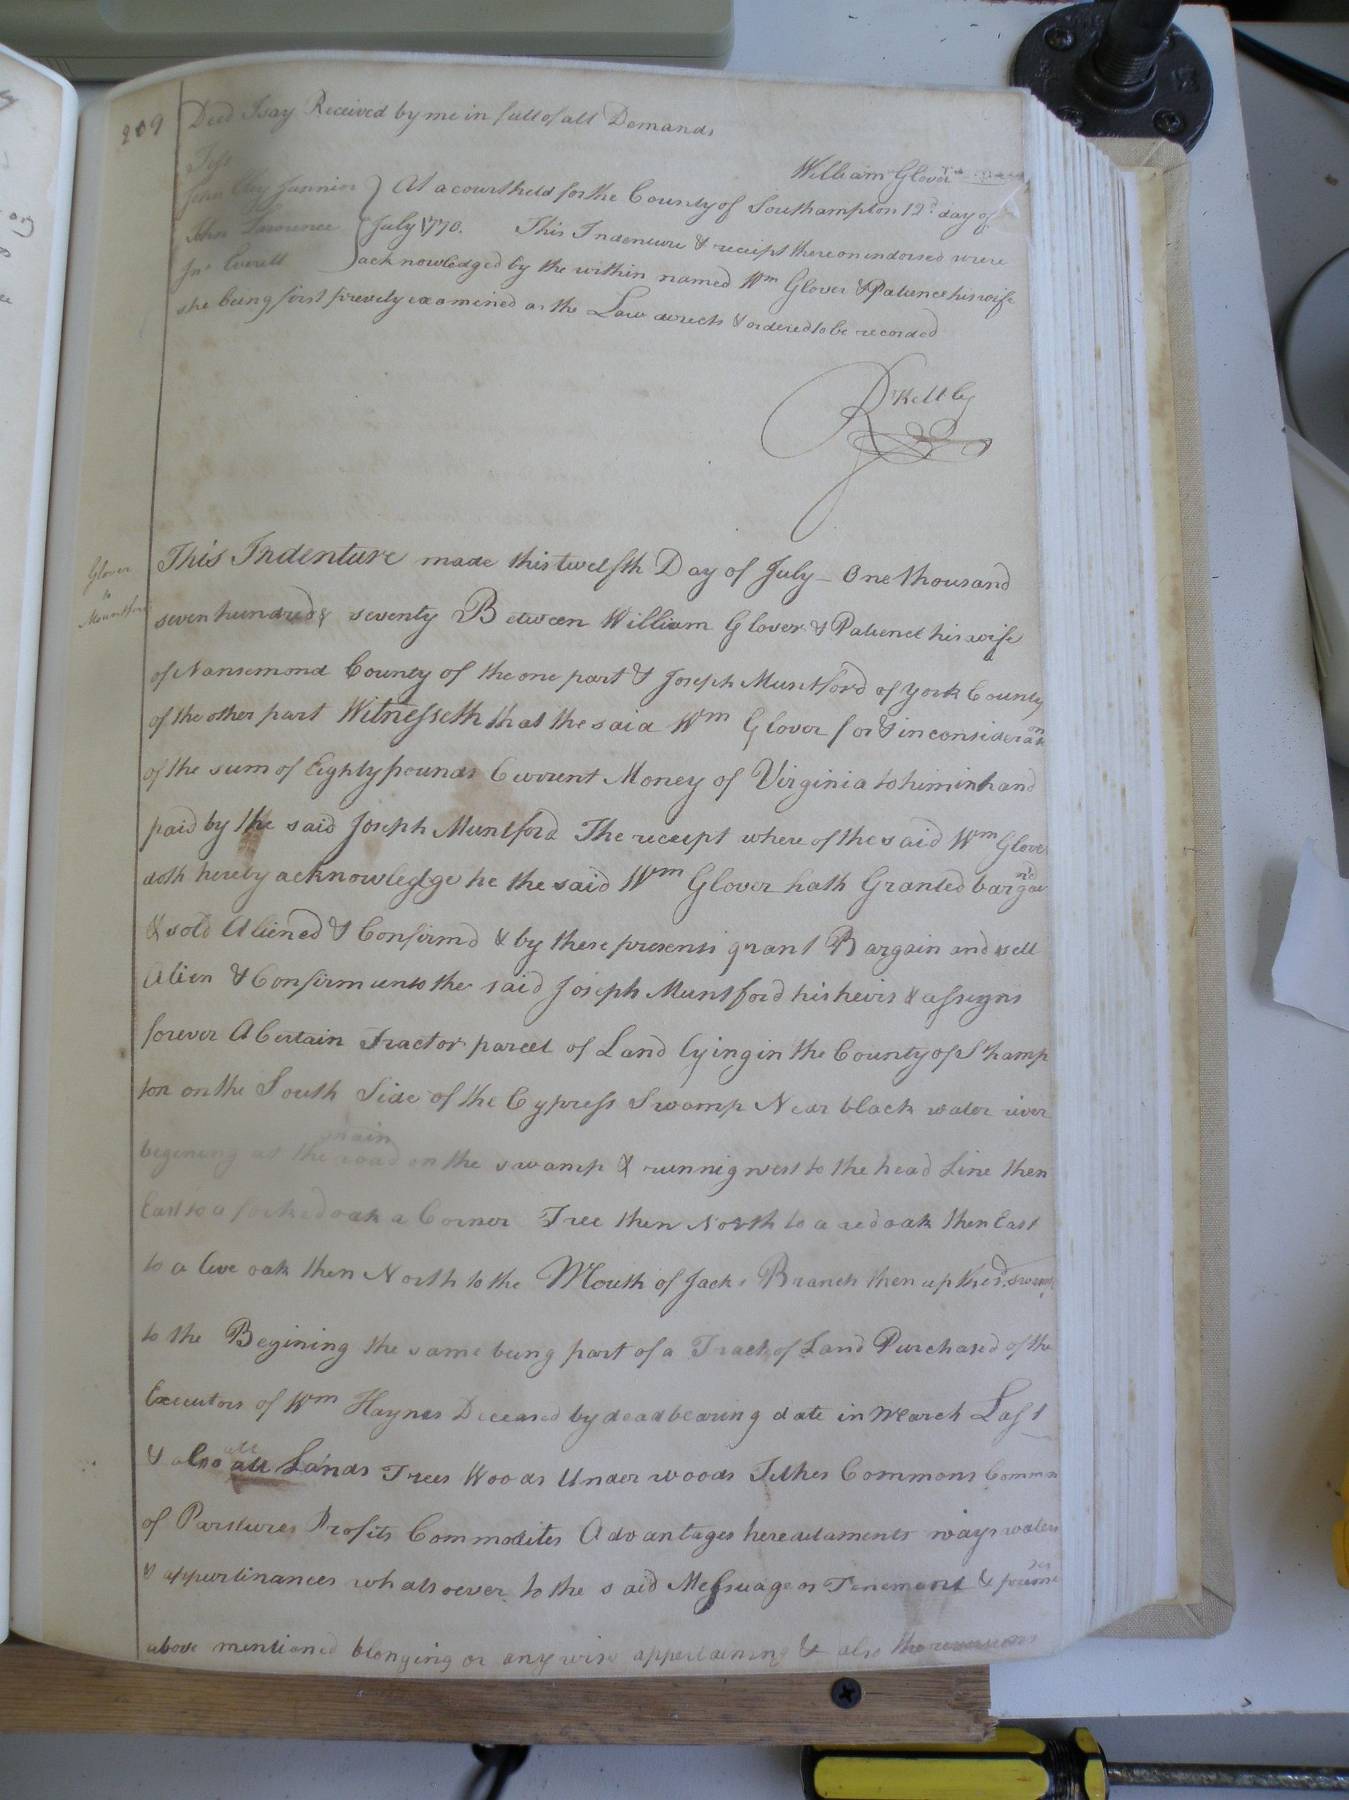 209
Deed I say Received by me in full of all Demands
William Glover
Test
John Clay Junnior } At a court held for the County of Southampton 12th day of
John Lawrence { July 1770. This Indenture & receipt thereon endorsed were
Jno Everett } acknowledged by the within named Wm Glover & Patience his wife
she being first privety examined as the Law directs & ordered to be recorded
R Kellby
Glover
to
Mountford
This Indenture made this twelfth Day of July - One thousand
seven hundred & seventy Between William Glover & Patience his wife
of Nansemond County of the one part & Joseph Muntford of York County
of the other part Witnesseth that the said Wm Glover for & in consideration
of the sum of Eighty pounds Current Money of Virginia to him in hand
paid by the said Joseph Muntford The receipt where of the said Wm Glover
doth hereby acknowledge he the said Wm Glover hath Granted bargaind
& sold Aliened & Confirmd & by these presents grant Bargain and sell
Alien & Confirm unto the said Joseph Muntford his heirs & assigns
forever A Certain Tract or parcel of Land lying in the County of Sthamp
ton on the South Side of the Cypress Swamp Near black water river
begening at the main road on the swamp & runnig west to the head Line then
East to a forked oak a Corner Tree then North to a red oak then East
to a live oak then North to the Mouth of Jacks Branch then up the sd swamp
to the Begining the same being part of a Tract of Land Purchased of the
Executors of Wm Haynes Deceased by dead bearing date in March Last
& also all all Lands Trees Woods Under woods Tithes Commons Common
of Parstures Profits Commodites Advantages hereditaments ways waters
& appurtinances whatsoever to the said Messuage or Tenement & premises
above mentioned blonging or any wise appertaining & also the reversions